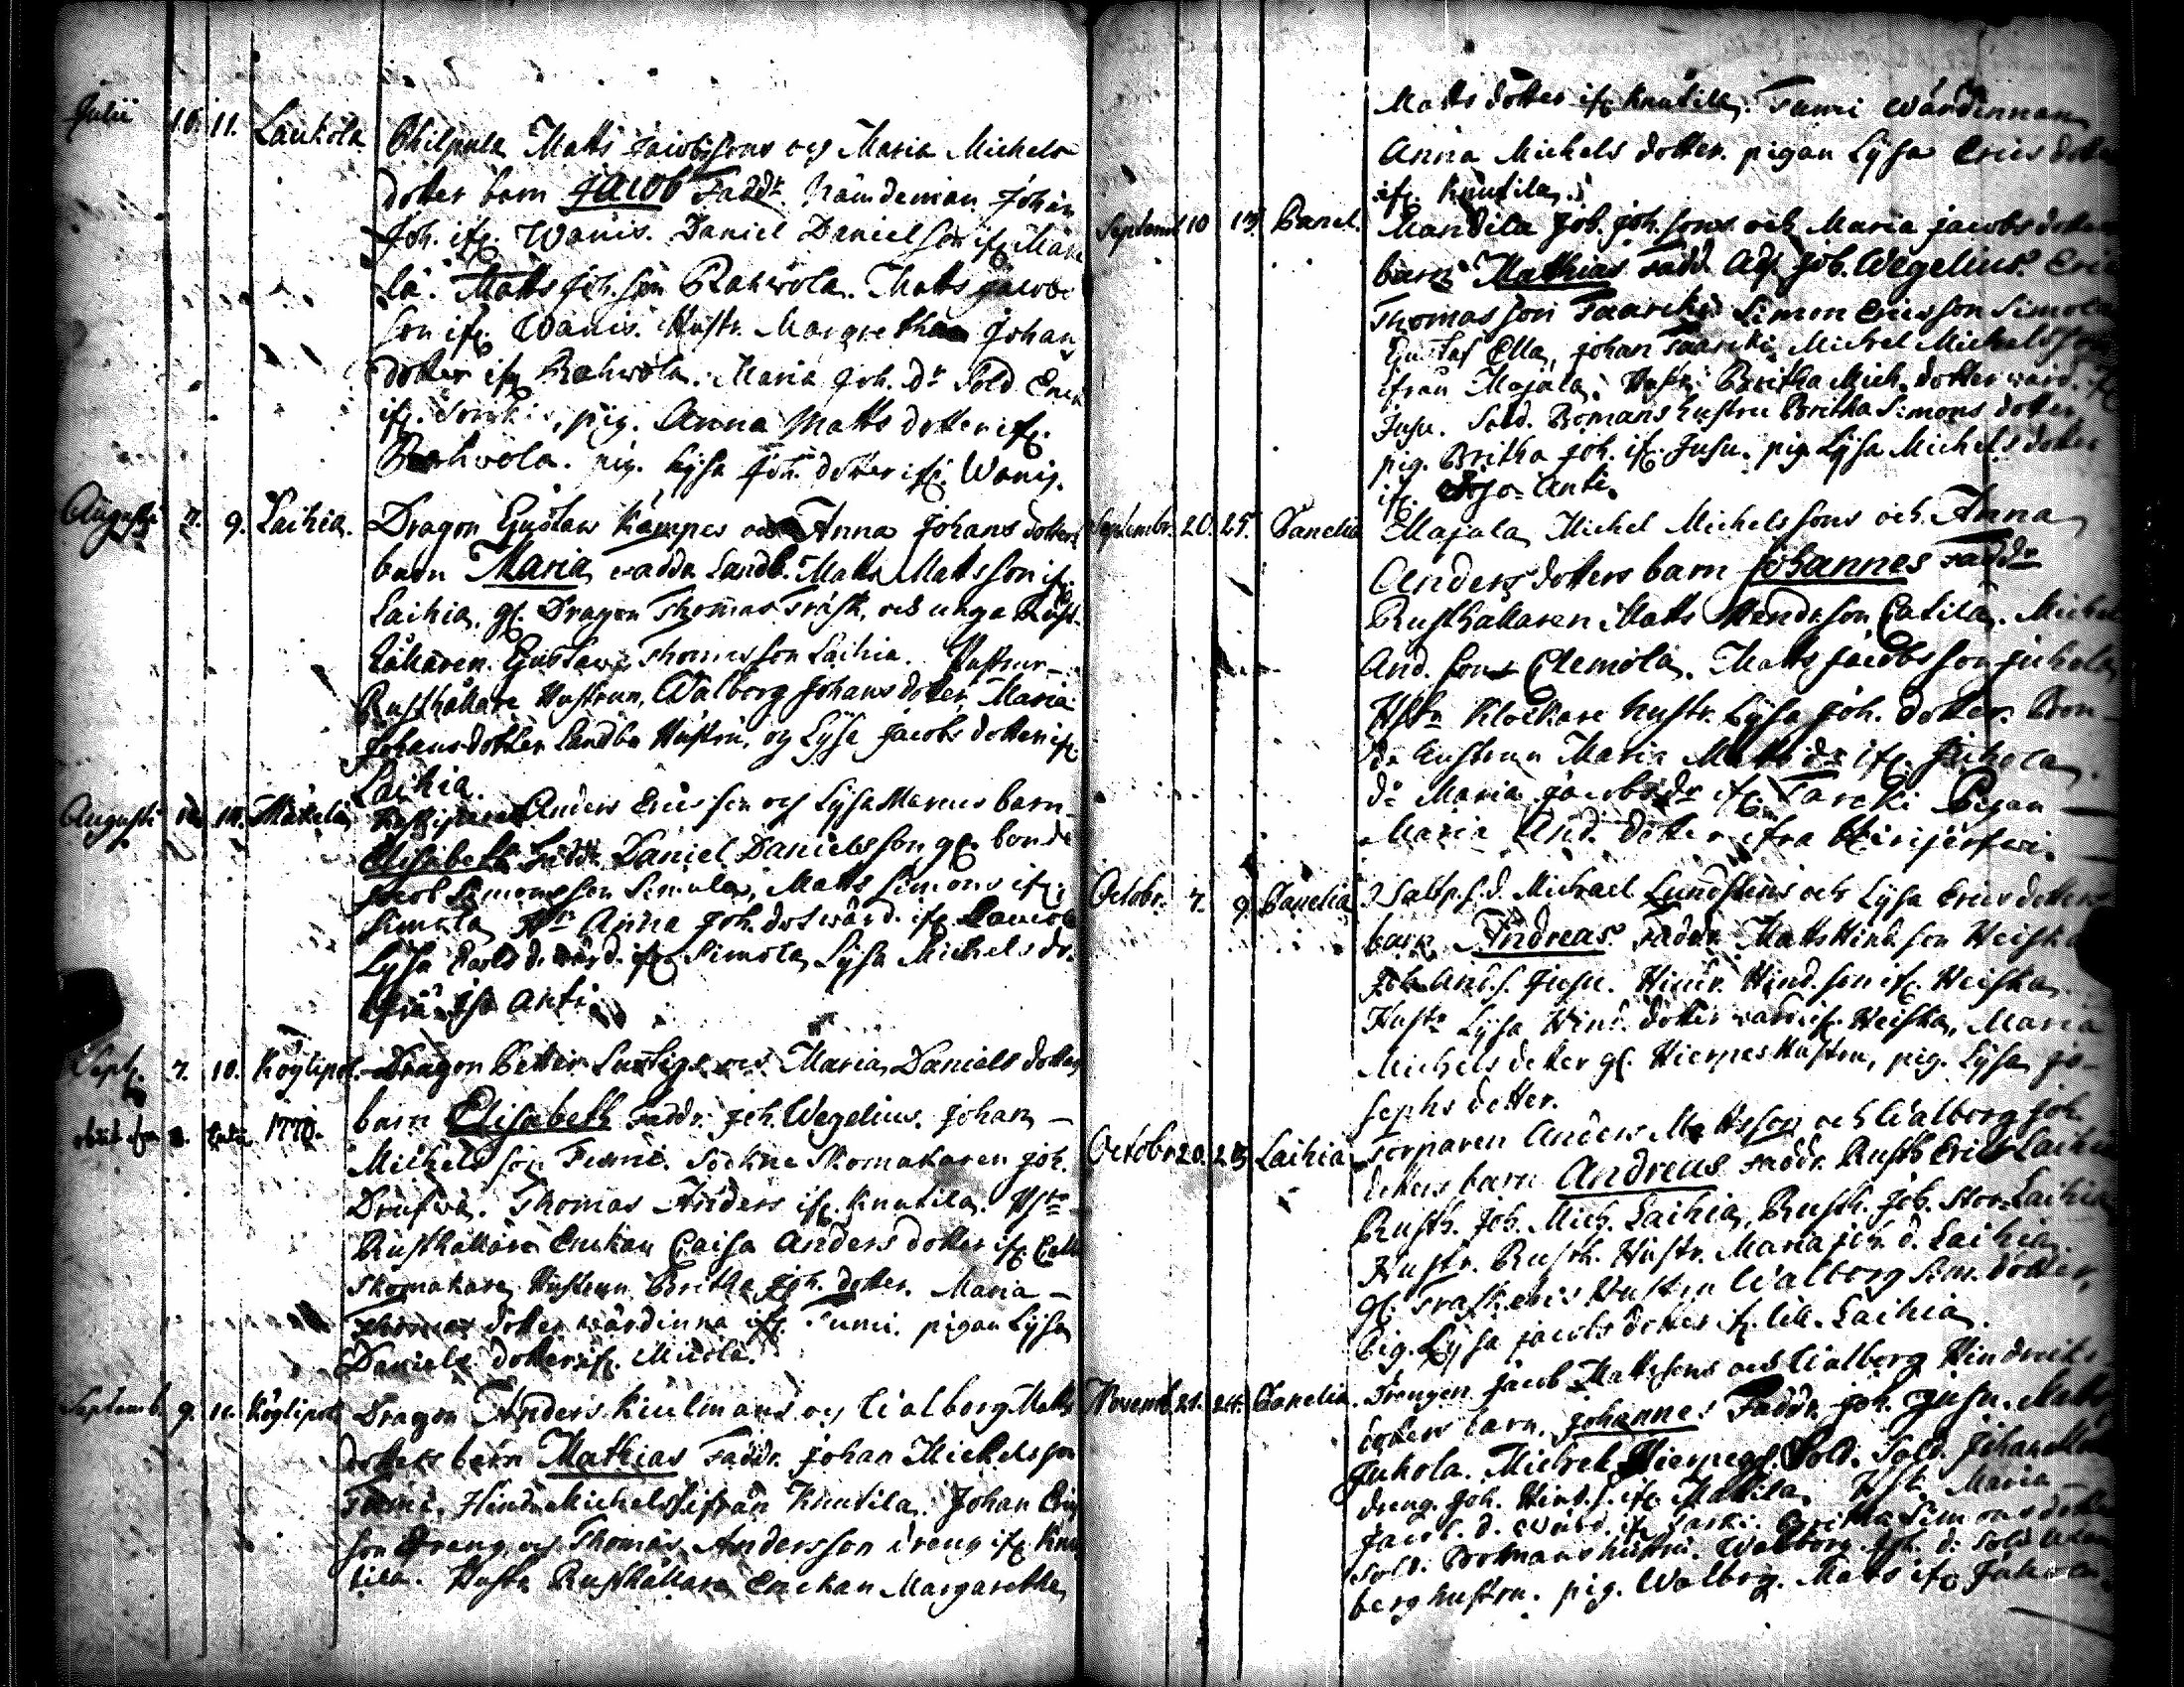 Julii 10. 11. Laukola Philpula Matts Jacobssons och Maria Michels
dotter barn Jacob Faddr. Nämdeman Johan
Joh. ifr. Wanis. Daniel Danielson ifr. Mäke
lä. Matts Joh. son Rahwola. Matts Jacobs
son ifr. Wanis. Hustr. Margretha Johan
dotter ifr. Rahwola. Maria Joh. dr Sold. Erik
ifr. pig. Anna Matts dotter ifr.
Rahwola. pig. Lysa Joh. dotter ifr. Wanis.
Augusti 7. 9. Laihia. Dragon Gustaw Kämpes och Anna Johans dotters
barn Maria Faddr. Landb. Matts Mattsson ifr.
Laihia. gl. Dragon Thomas Frisk, och unga Rust-
hållaren Gustaw Thomasson Laihia. Hustrur
Rusthållare Hustrun, Walborg Johans dotter, Maria
Johansdotter Landbo Hustru, och Lysa Jacobs dotter ifr.
Laihia.
Augusti Mäkelä Anders Ericsson och Lysa Marcus barn
Elisabeth Faddr. Daniel Danielsson gl. bonde
Jacob Simonsson Simula, Matts Simons ifr.
Simola Hr Anna Joh. dot. wärd. ifr.
Lysa Carls d. wärd. ifr. Simola, Lysa Michels dr.
ifrån Iso Anti.
Sept. 7. 10. Köylipol. Dragon Petter Lustigs och Maria Daniels dotters
1770. barn Elisabeth Faddr. Joh. Wegelius. Johan
Michels son Tumi. Sockne Skomakaren Joh.
Drufwa. Thomas Anders ifr. Knutila. Hstr
Rusthållare Enckan Caisa Anders dotter ifr.
Skomakare Hustrun Britha Joh. dotter. Maria
Thomas dotter wärdinna ifr. Tumi. pigan Lysa
Daniels dotter ifr. Micola.
Septemb. 9. 11. Köylipol. Dragon Anders Kiulmans och Walborg Matts
dotters barn Mathias Faddr. Johan Michelsson
Tumi, Hind. Michels. ifrån Knutila. Johan Eric
son Dreng och Thomas Andersson dreng ifr. Knu
tila. Hustr. Rusthållare Enckan Margaretha
Matts dotter ifr. Knutila. Tumi Wärdinnan
Anna Michels dotter. pigan Lysa Erics dotter
ifr. Knutila.
Septemb. 10 13. Panel. Mandila Joh. Joh. sons och Maria Jacobs dotters
barn Mathias Fadd. Adj. Joh. Wegelius. Eric
Thomasson Taarcki. Simon Ericsson Simola
Gustaf Ella, Johan Taarcki, Michel Michelsson
ifrån Majala. Hustr. Britha Mich. dotter wärd. ifr.
Jusu. Sold. Bomans hustru Britha Simons dotter,
pig. Britha Joh. ifr. Jusu. pig. Lysa Michels dotter
ifr. Iso Anti.
Septembr. 20. 25. Panelia Majala Michel Michelssons och Anna
Anders dotters barn Johannes Faddr
Rusthållaren Matts Hendr. son Catila. Michel
And. son Clemola. Matts Jacobsson Juhola
Hstr Klockare hustr. Lysa Joh. dotter. Bon-
de hustrun Maria Matts dr ifr. Juhola.
do Maria Jacobs dr ifr. Tarcki Pigan
Maria And. dotter ifrå Hirijerfwi.
Octobr. 7. 9. Panelia Michael Lundstens och Lysa Erics dotters
barn Andreas. Faddr. Matts Hind. son Heiska
Joh. And. s. Jusu. Hindr. Hind. son ifr. Heiska.
Hustr Lysa Hind. dotter ward. ifr. Heiska, Maria
Michels dotter gl. Hierpes Hustru, pig. Lysa Jo-
sephs dotter.
Octobr. 20. 23. Laihia Torparen Anders Mattsson och Walborg Joh.
dotters barn Andreas Faddr. Rusth. Eric Laihia
Rusth. Joh. Mich. Laihia, Rusth. Joh. Stor Laihia
Hustr. Rusth. Hustr. Maria Joh. d. Laihia.
gl. Hustru Walborg Sim. dotter,
Pig. Lysa Jacobs dotter ifr. lill. Laihia.
Novemb. 21. 24. Panelia. Drengen Jacob Mattssons och Walborg Hindrichs
dotters barn Johannes Faddr. Joh. Jusu. Matts
Juhola. Michel Hierpe gl. Sold. Sold. Johan
dreng. Joh. Hind. s. ifr. Mattila. Hstr. Maria
Jacob. d. wärd. ifr. Tarki. Britha Simons dotter
Sold. Bomans hustru. Walborg Joh. d. Sold
berg hustru. pig. Walborg. Matts ifr.